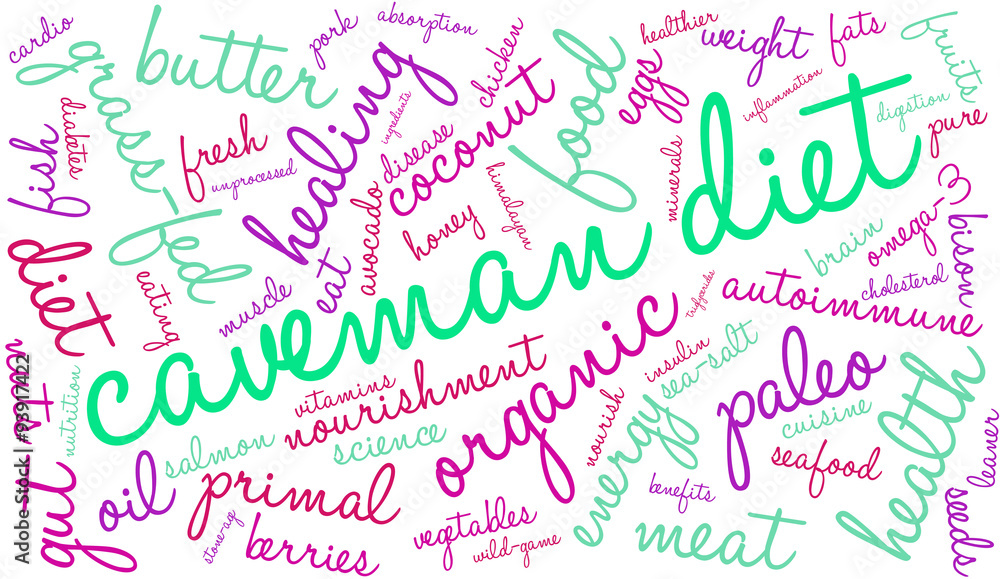 cardio
butter
pork
absorption
healthier
weight
fats
fruits
grass-fed
healing
chicken
eggs
inflammation
digestion
diabetes
fresh
ingredients
food
pure
fish
unprocessed
disease
coconut
minerals
omega-3
himalayan
avocado
honey
brain
bison
diet
eating
muscle
eat
caveman diet
cholesterol
triglycerides
autoimmune
nutrition
vitamins
nourishment
organic
insulin
sea-salt
paleo
health
salmon
science
nourish
energy
cuisine
leaner
gut
oil
primal
seafood
benefits
seeds
stone-ag
berries
vegetables
wild-game
meat
Adobe Stock | #93917422
Adobe Stock